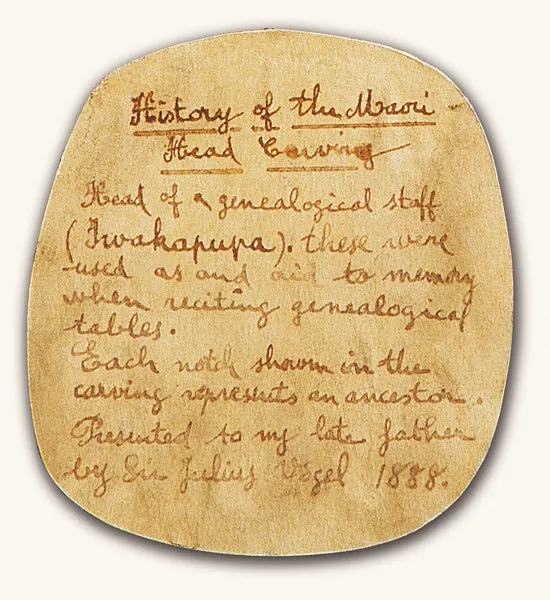 History of the Maori
Head Carving
Head of a genealogical staff
(Iwakapupa). these were
used as and aid to memory
when reciting genealogical
tables.
Each notch shown in the
carving represents an ancestor.
Presented to my late father
by Sir Julius Vogel 1888.